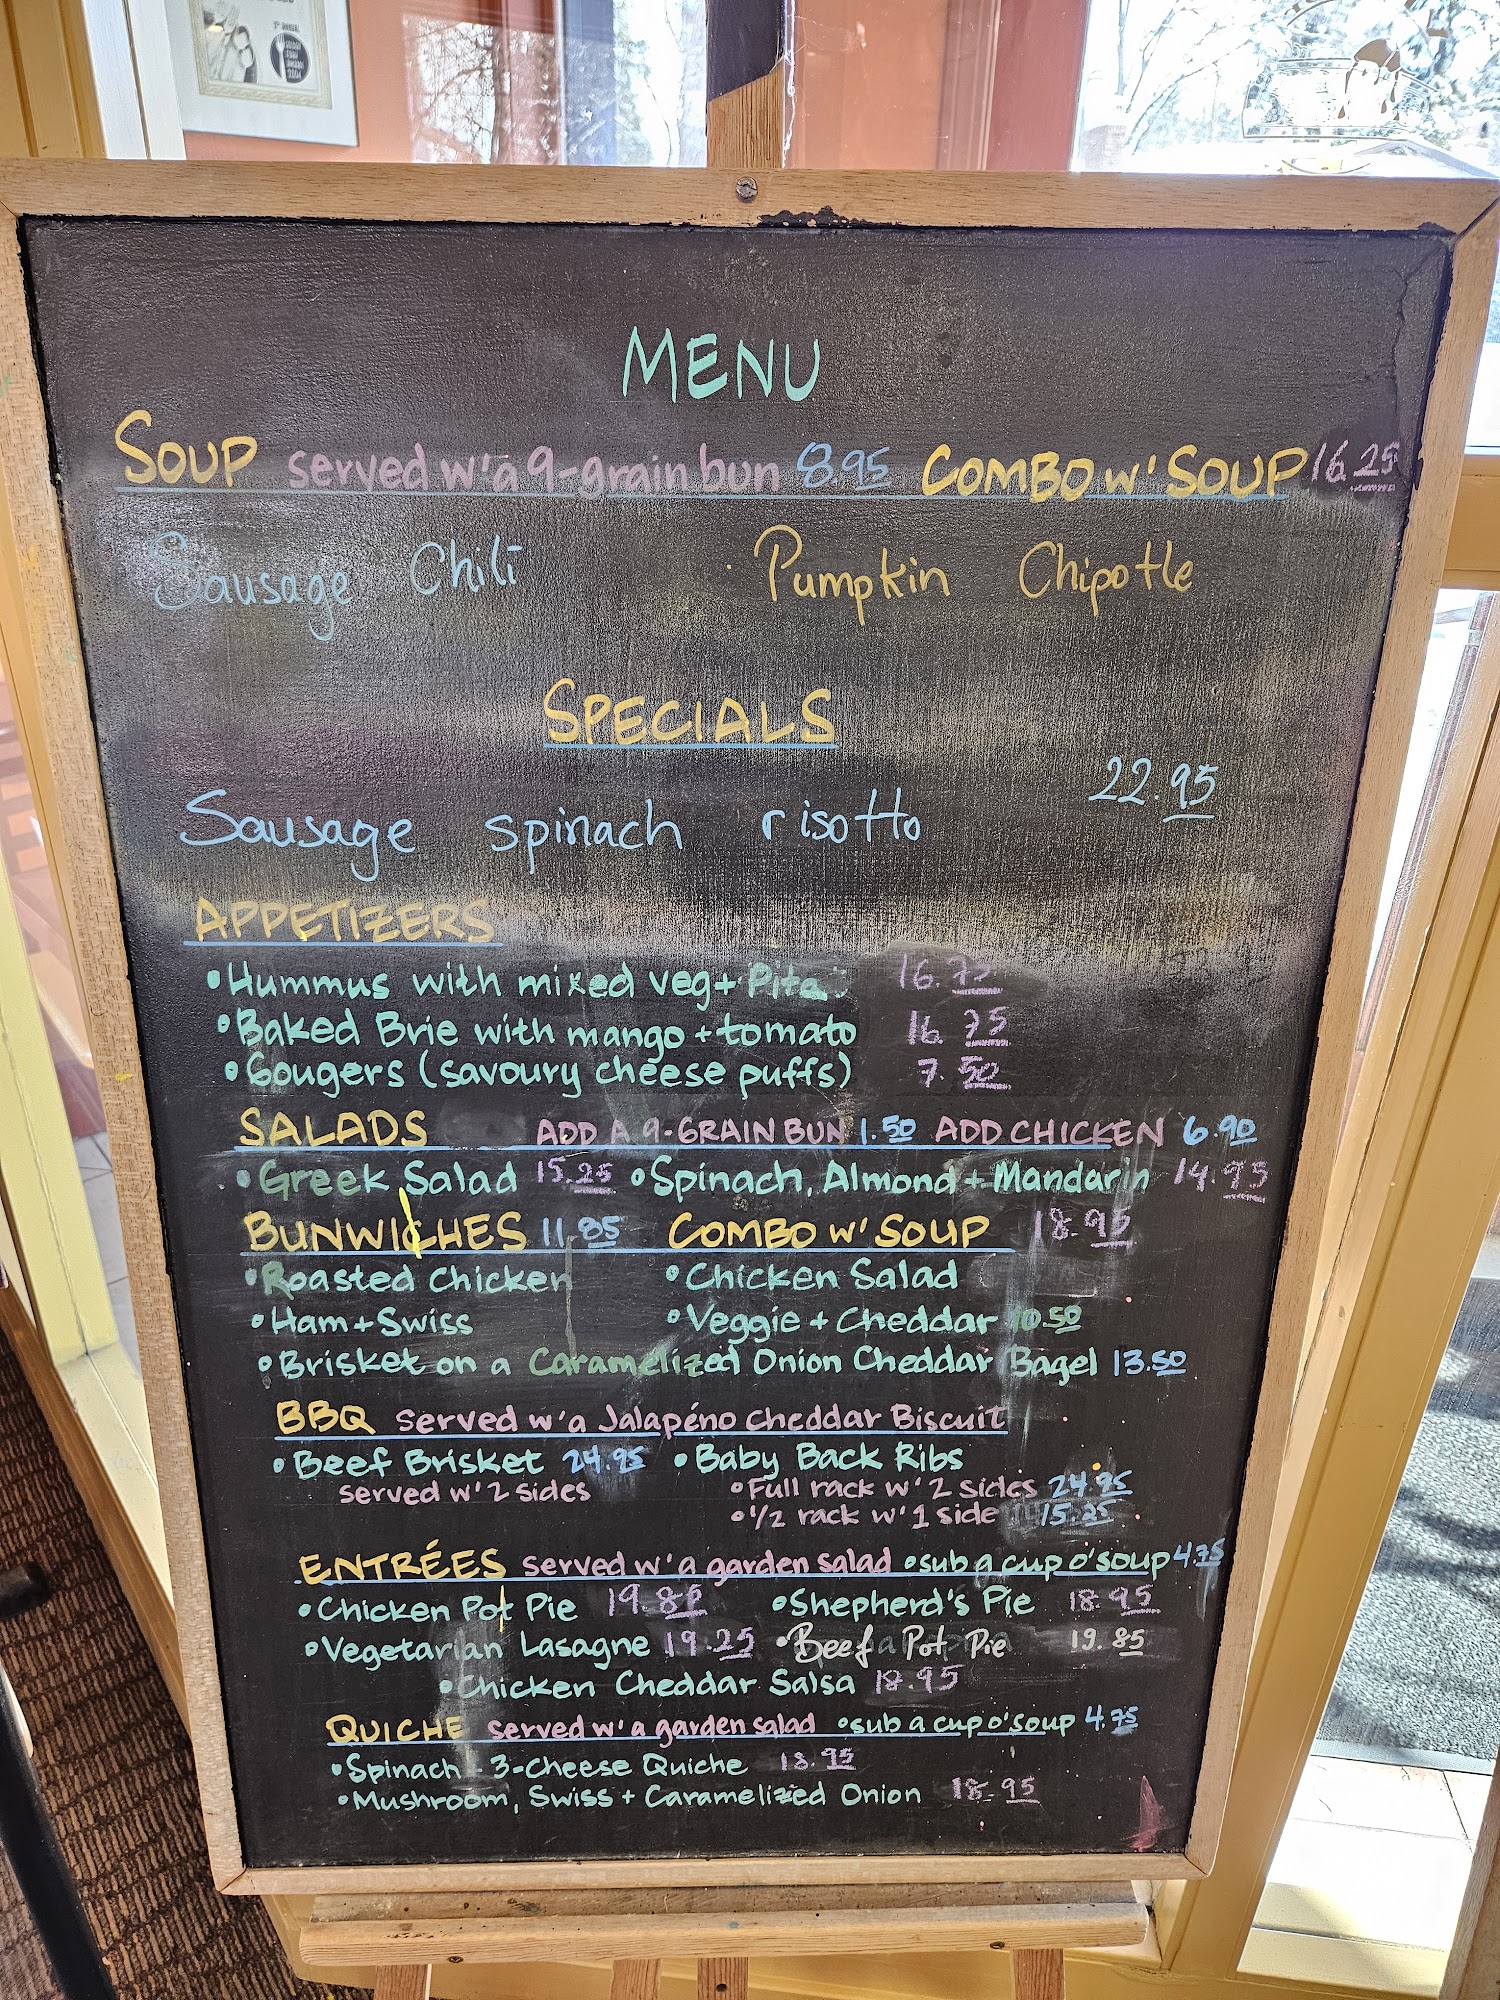 MENU
SOUP served w' a 9-grain bun 8.95 COMBO w' SOUP 16.25
Sausage Chili Pumpkin Chipotle
SPECIALS
Sausage spinach risotto 22.95
APPETIZERS
•Hummus with mixed veg + Pita 16.75
•Baked Brie with mango + tomato 16.75
•Gougers (savoury cheese puffs) 7.50
SALADS ADD A 9-GRAIN BUN 1.50 ADD CHICKEN 6.90
•Greek Salad 15.25 •Spinach, Almond + Mandarin 14.95
BUNWICHES 11.85 COMBO w' SOUP 18.95
•Roasted Chicken •Chicken Salad
•Ham + Swiss •Veggie + Cheddar 10.50
•Brisket on a Caramelized Onion Cheddar Bagel 13.50
BBQ served w' a Jalapéno Cheddar Biscuit
•Beef Brisket 24.95 •Baby Back Ribs
served w' 2 sides •Full rack w' 2 sides 24.95
•1/2 rack w' 1 side 15.25
ENTRÉES served w' a garden salad •sub a cup o' soup 4.75
•Chicken Pot Pie 19.85 •Shepherd's Pie 18.95
•Vegetarian Lasagne 19.25 •Beef Pot Pie 19.85
•Chicken Cheddar Salsa 18.95
QUICHE served w' a garden salad •sub a cup o' soup 4.75
•Spinach 3-Cheese Quiche 18.95
•Mushroom, Swiss + Caramelized Onion 18.95